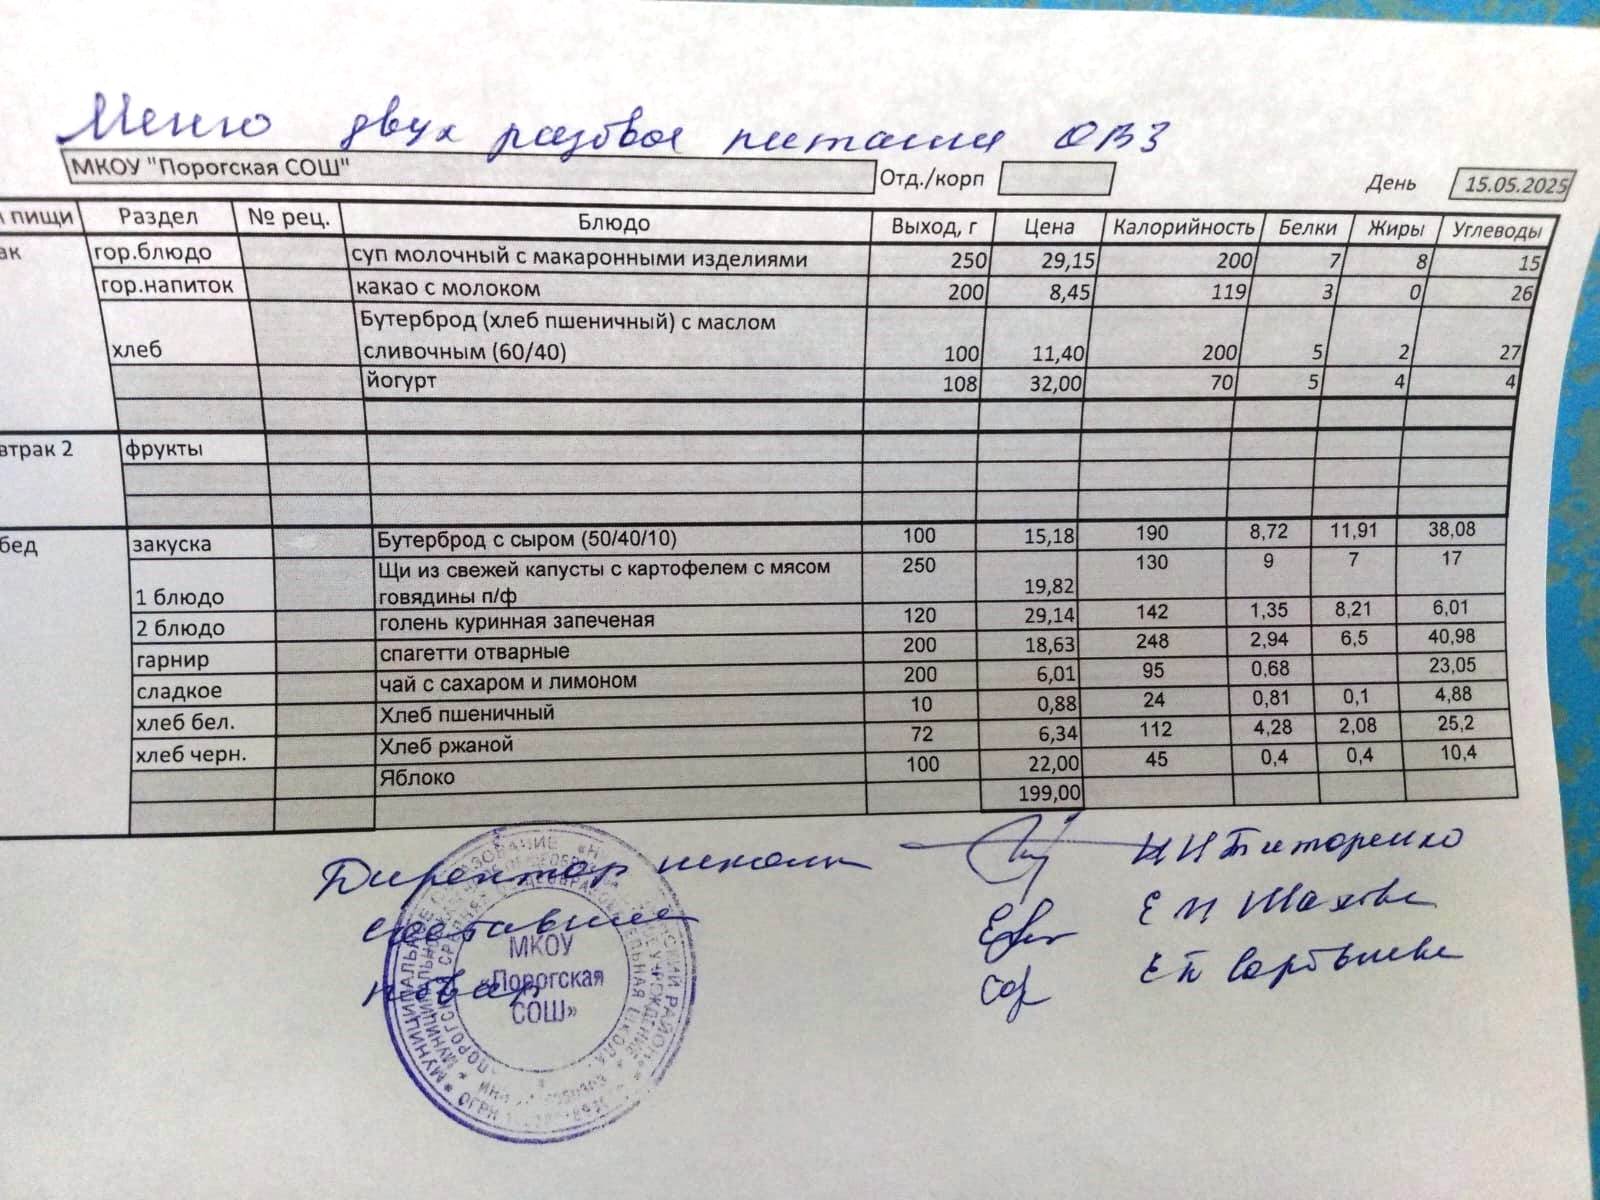 Меню двух разовое питания ОВЗ
МКОУ "Порогская СОШ" Отд./корп День 15.05.2025
пищи Раздел № рец. Блюдо Выход, г Цена Калорийность Белки Жиры Углеводы
ак гор.блюдо суп молочный с макаронными изделиями 250 29,15 200 7 8 15
гор.напиток какао с молоком 200 8,45 119 3 0 26
Бутерброд (хлеб пшеничный) с маслом
хлеб сливочным (60/40) 100 11,40 200 5 2 27
йогурт 108 32,00 70 5 4 4
втрак 2 фрукты
бед закуска Бутерброд с сыром (50/40/10) 100 15,18 190 8,72 11,91 38,08
Щи из свежей капусты с картофелем с мясом 250 130 9 7 17
1 блюдо говядины п/ф 19,82
2 блюдо голень куринная запеченая 120 29,14 142 1,35 8,21 6,01
гарнир спагетти отварные 200 18,63 248 2,94 6,5 40,98
сладкое чай с сахаром и лимоном 200 6,01 95 0,68 23,05
хлеб бел. Хлеб пшеничный 10 0,88 24 0,81 0,1 4,88
хлеб черн. Хлеб ржаной 72 6,34 112 4,28 2,08 25,2
Яблоко 100 22,00 45 0,4 0,4 10,4
199,00
Директор школы Н И Титоренко
составил Е И Шахова
повар Е П
МКОУ
«Порогская
СОШ»